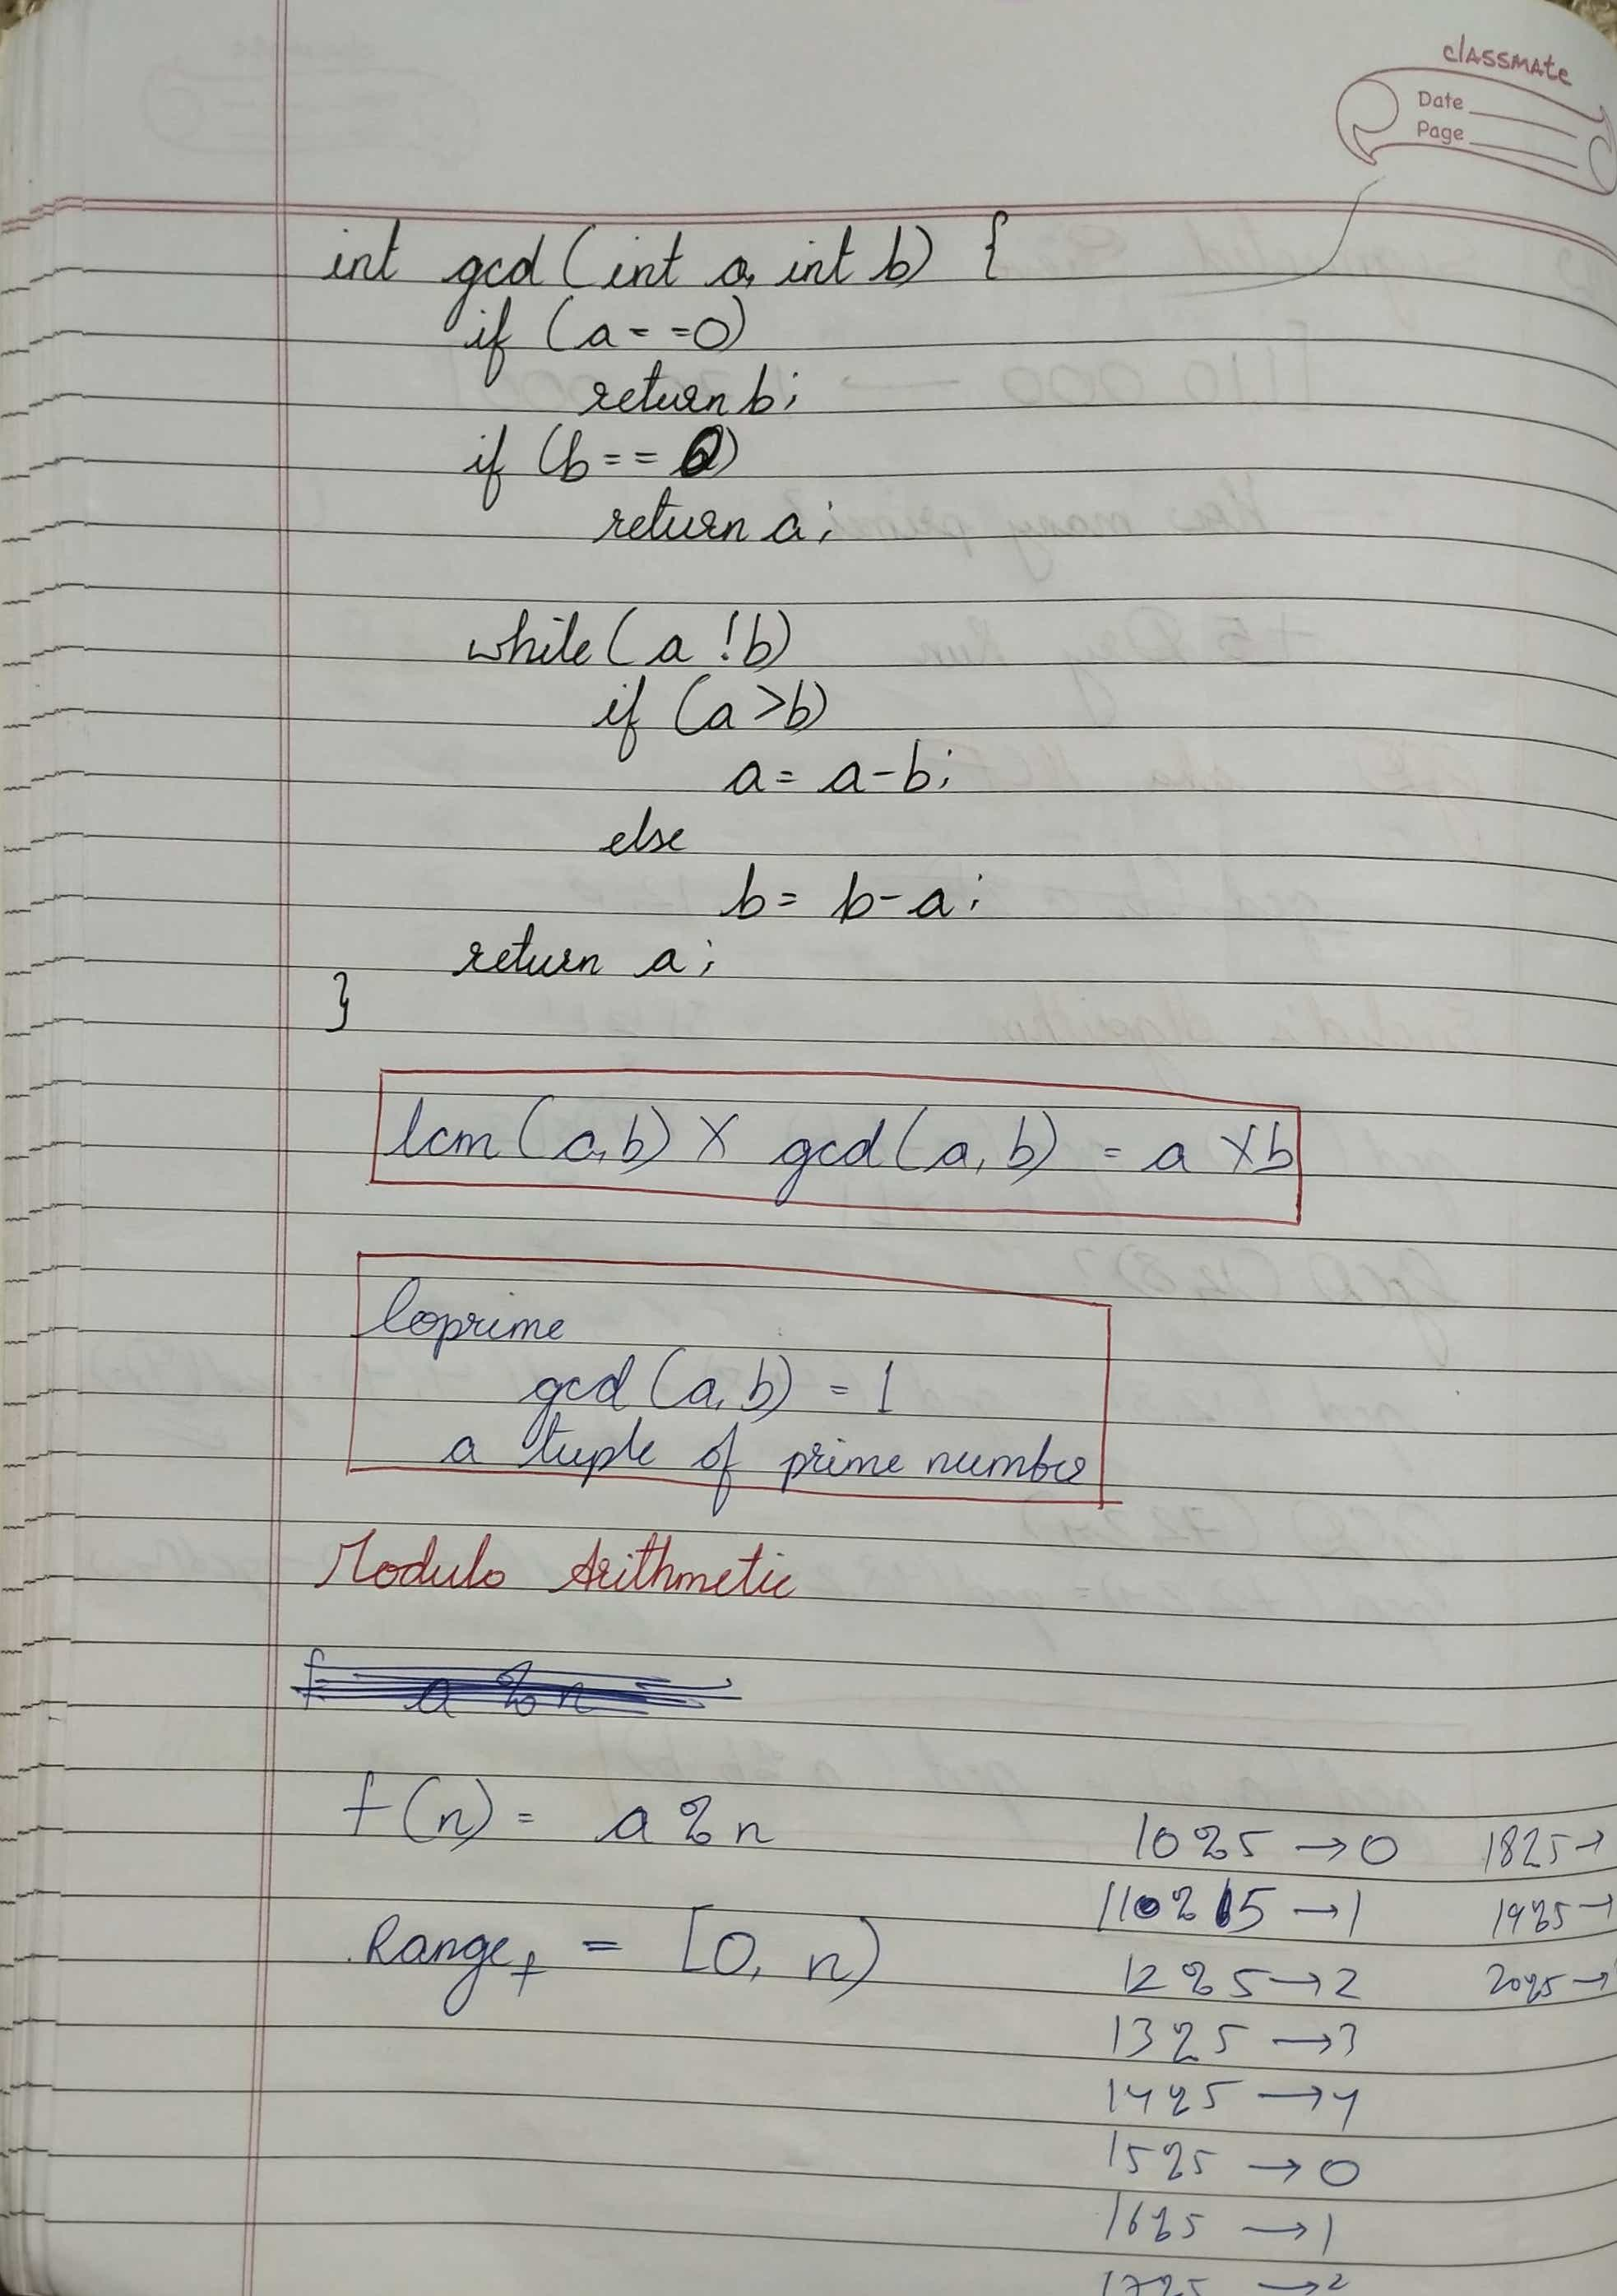 classmate
Date
Page
int gcd (int a, int b) {
if (a==0)
return b;
if (b==0)
return a;
while (a !b)
if (a>b)
a = a-b;
else
b = b-a;
return a;
}
lcm (a,b) X gcd (a, b) = a X b
Coprime
gcd (a, b) = 1
a tuple of prime number
Modulo Arithmetic
f a % n
f(n) = a % n
Range f = [0, n)
10 % 5 → 0
11 % 5 → 1
12 % 5 → 2
13 % 5 → 3
14 % 5 → 4
15 % 5 → 0
16 % 5 → 1
17 % 5 → 2
18 % 5 →
19 % 5 →
20 % 5 →